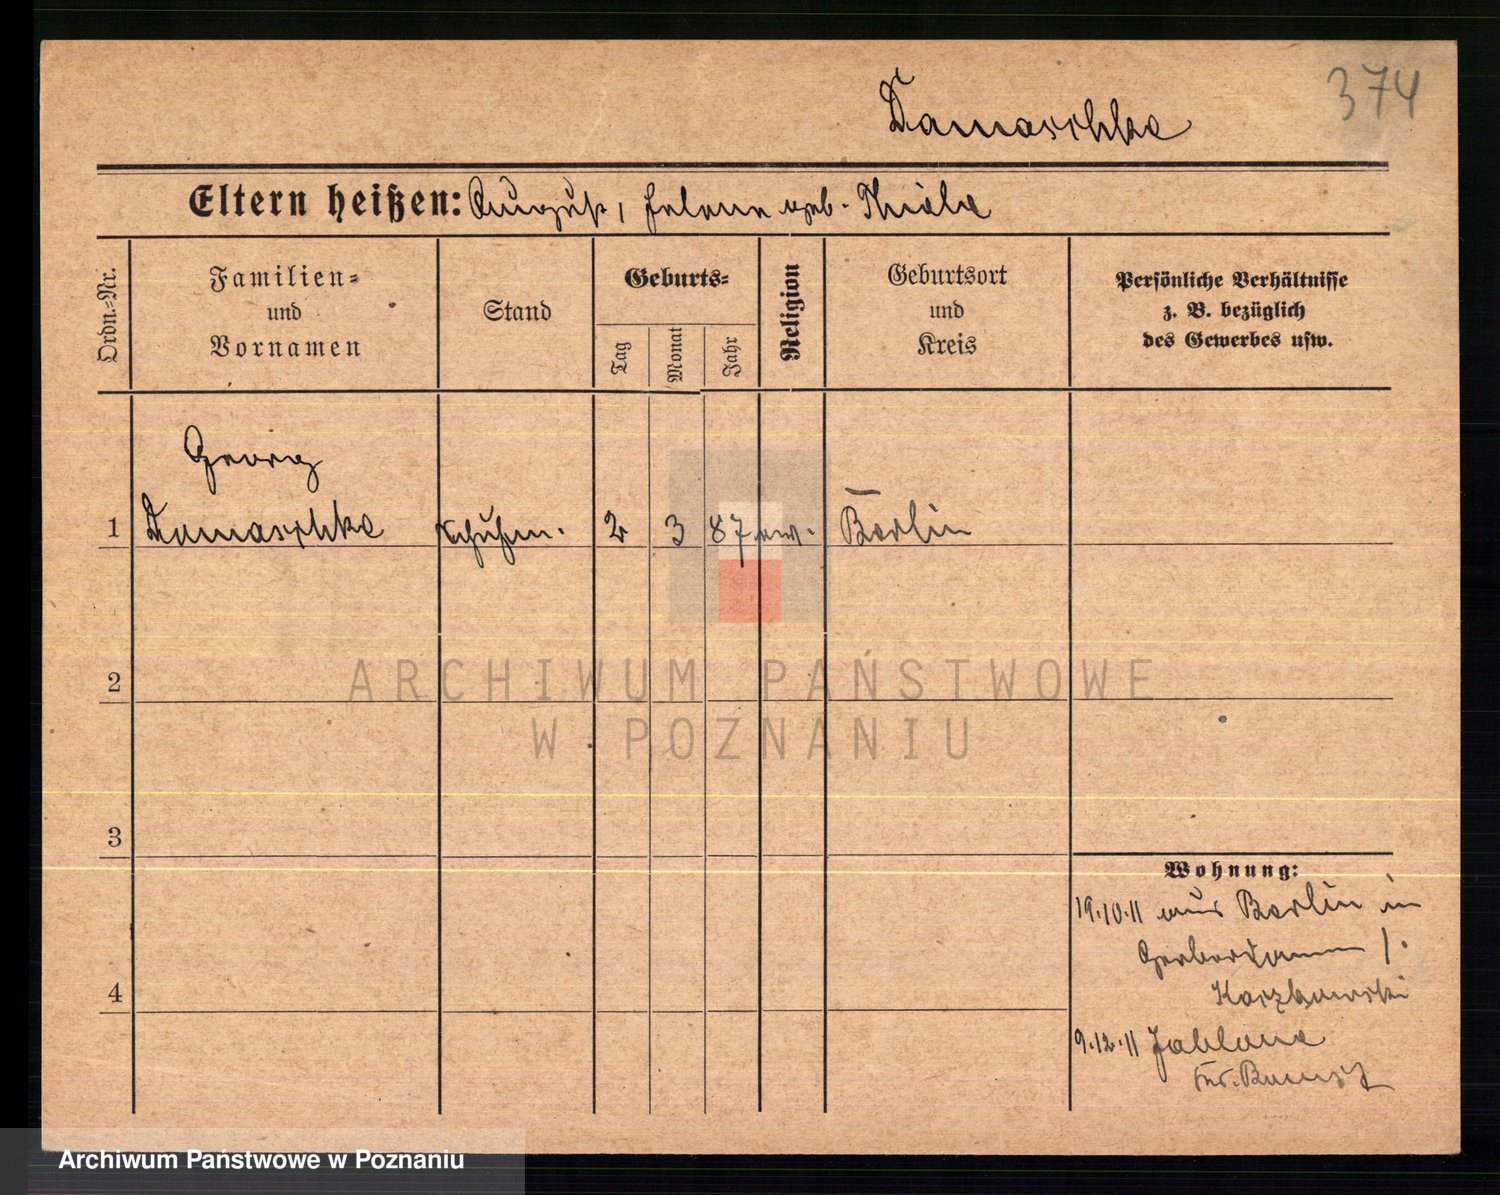 374
Damaschke
Eltern heißen: August, Helene geb. Thiele
Ordn.-Nr.
Familien-
und
Vornamen
Stand
Geburts-
Tag
Monat
Jahr
Religion
Geburtsort
und
Kreis
Persönliche Verhältnisse
z. B. bezüglich
des Gewerbes usw.
Georg
1 Damaschke Schuhm. 2 3 87 ew. Berlin
2
ARCHIWUM PAŃSTWOWE
W POZNANIU
3
Wohnung:
19.10.11 aus Berlin in
Gerberdamm 1.
4
9.12.11 Jablone
Kr. Bomst
Archiwum Państwowe w Poznaniu